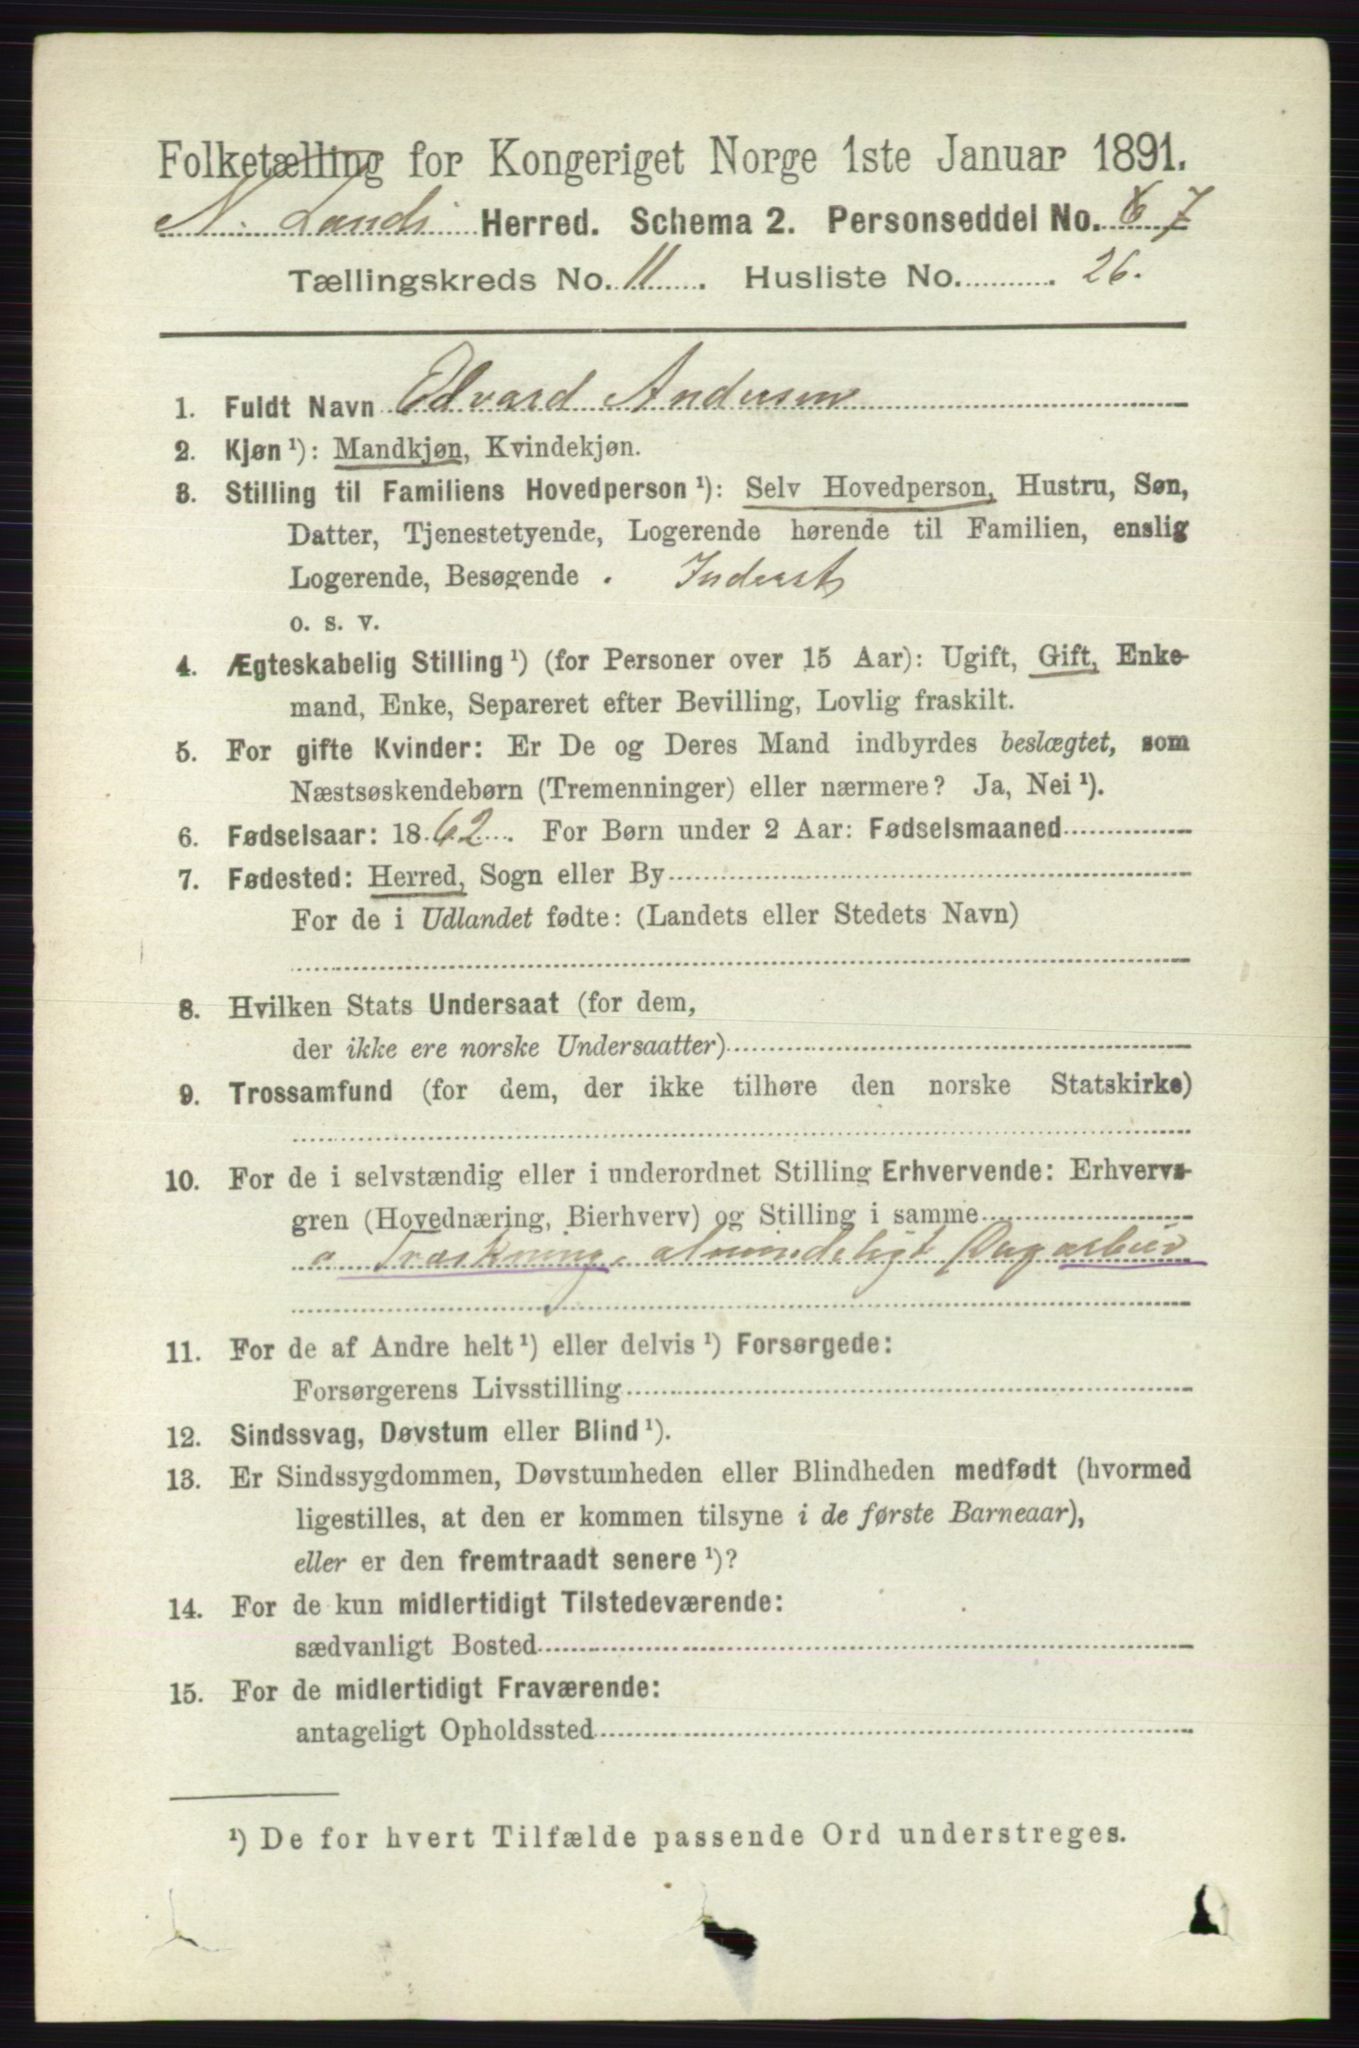 Folketælling for Kongeriget Norge 1ste Januar 1891.
N. Lands Herred. Schema 2. Personseddel No. 6 7
Tællingskreds No. 11. Husliste No. 26.
1. Fuldt Navn Edvard Andersen
2. Kjøn ¹): Mandkjøn, Kvindekjøn.
3. Stilling til Familiens Hovedperson ¹): Selv Hovedperson, Hustru, Søn,
Datter, Tjenestetyende, Logerende hørende til Familien, enslig
Logerende, Besøgende . Inderst
o. s. v.
4. Ægteskabelig Stilling ¹) (for Personer over 15 Aar): Ugift, Gift, Enke-
mand, Enke, Separeret efter Bevilling, Lovlig fraskilt.
5. For gifte Kvinder: Er De og Deres Mand indbyrdes beslægtet, som
Næstsøskendebørn (Tremenninger) eller nærmere? Ja, Nei ¹).
6. Fødselsaar: 1862. For Børn under 2 Aar: Fødselsmaaned
7. Fødested: Herred, Sogn eller By
For de i Udlandet fødte: (Landets eller Stedets Navn)
8. Hvilken Stats Undersaat (for dem,
der ikke ere norske Undersaatter)
9. Trossamfund (for dem, der ikke tilhøre den norske Statskirke)
10. For de i selvstændig eller i underordnet Stilling Erhvervende: Erhvervs-
gren (Hovednæring, Bierhverv) og Stilling i samme
Træskning, almindeligt Dagarbeide
11. For de af Andre helt ¹) eller delvis ¹) Forsørgede:
Forsørgerens Livsstilling
12. Sindssvag, Døvstum eller Blind ¹).
13. Er Sindssygdommen, Døvstumheden eller Blindheden medfødt (hvormed
ligestilles, at den er kommen tilsyne i de første Barneaar),
eller er den fremtraadt senere ¹)?
14. For de kun midlertidigt Tilstedeværende:
sædvanligt Bosted
15. For de midlertidigt Fraværende:
antageligt Opholdssted
¹) De for hvert Tilfælde passende Ord understreges.